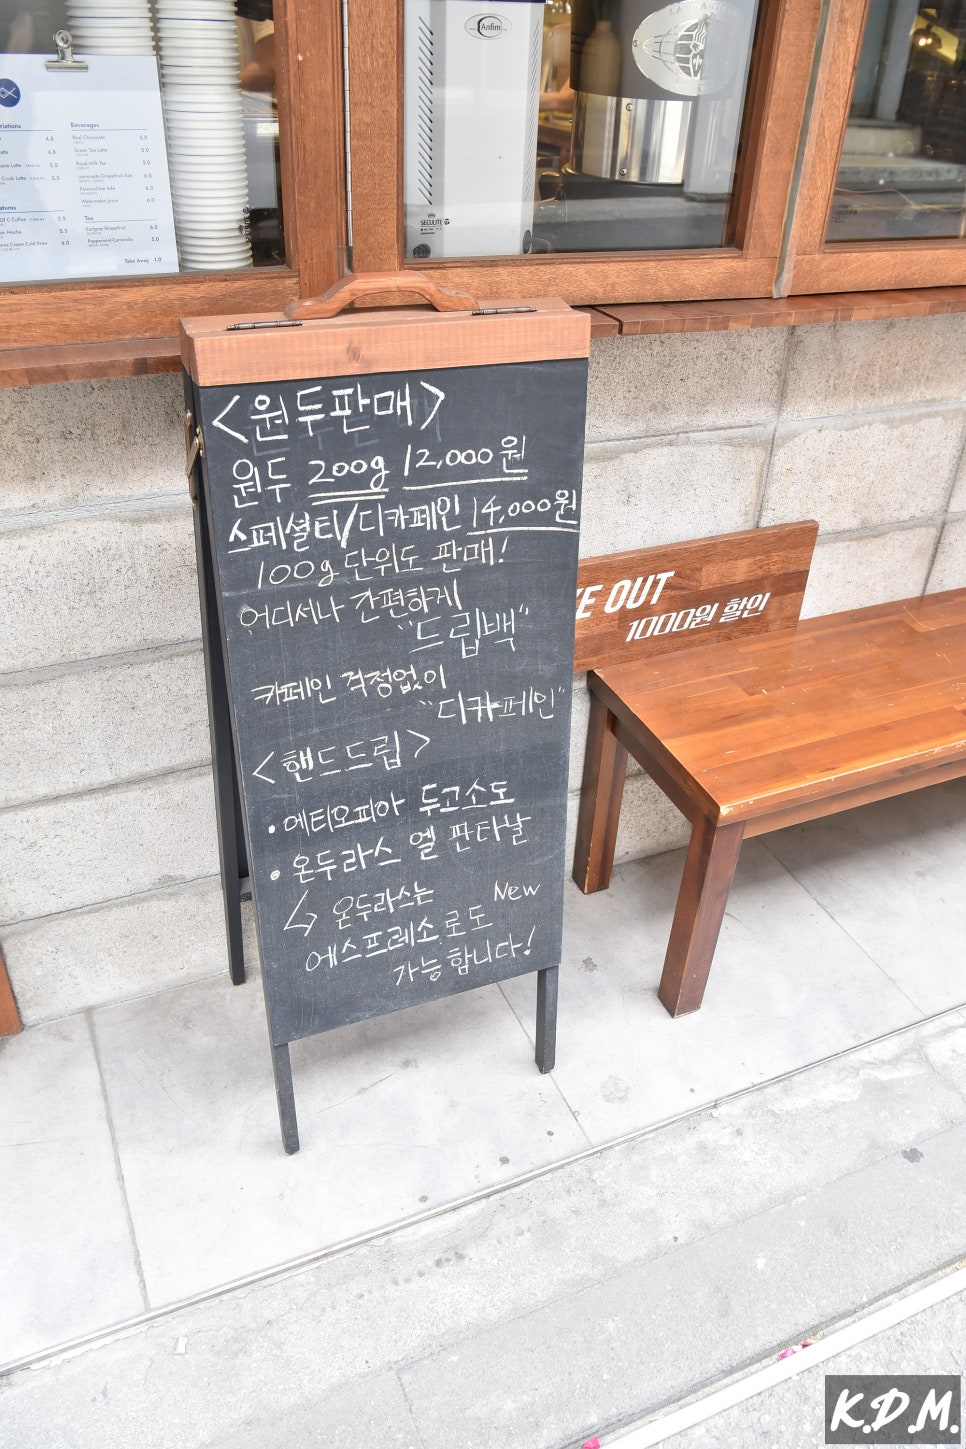 Anfim
SECULITE
Beverages
Real Chocolate 5.0
Green Tea Latte 5.0
Royal Milk Tea 6.0
Lemonade·Grapefruit Ade 6.0
Passionfruit Ade 6.0
Watermelon Juice 6.0
Tea
Earlgrey Grapefruit 6.0
Peppermint Camomile 5.0
Take Away -1.0
<원두판매>
원두 200g 12,000원
스페셜티/디카페인 14,000원
100g 단위도 판매!
어디서나 간편하게
"드립백"
카페인 걱정없이
"디카페인"
<핸드드립>
• 에티오피아 두고소도
• 온두라스 엘 판타날
↳ 온두라스는 New
에스프레소로도
가능합니다!
KE OUT
1000원 할인
K.D.M.